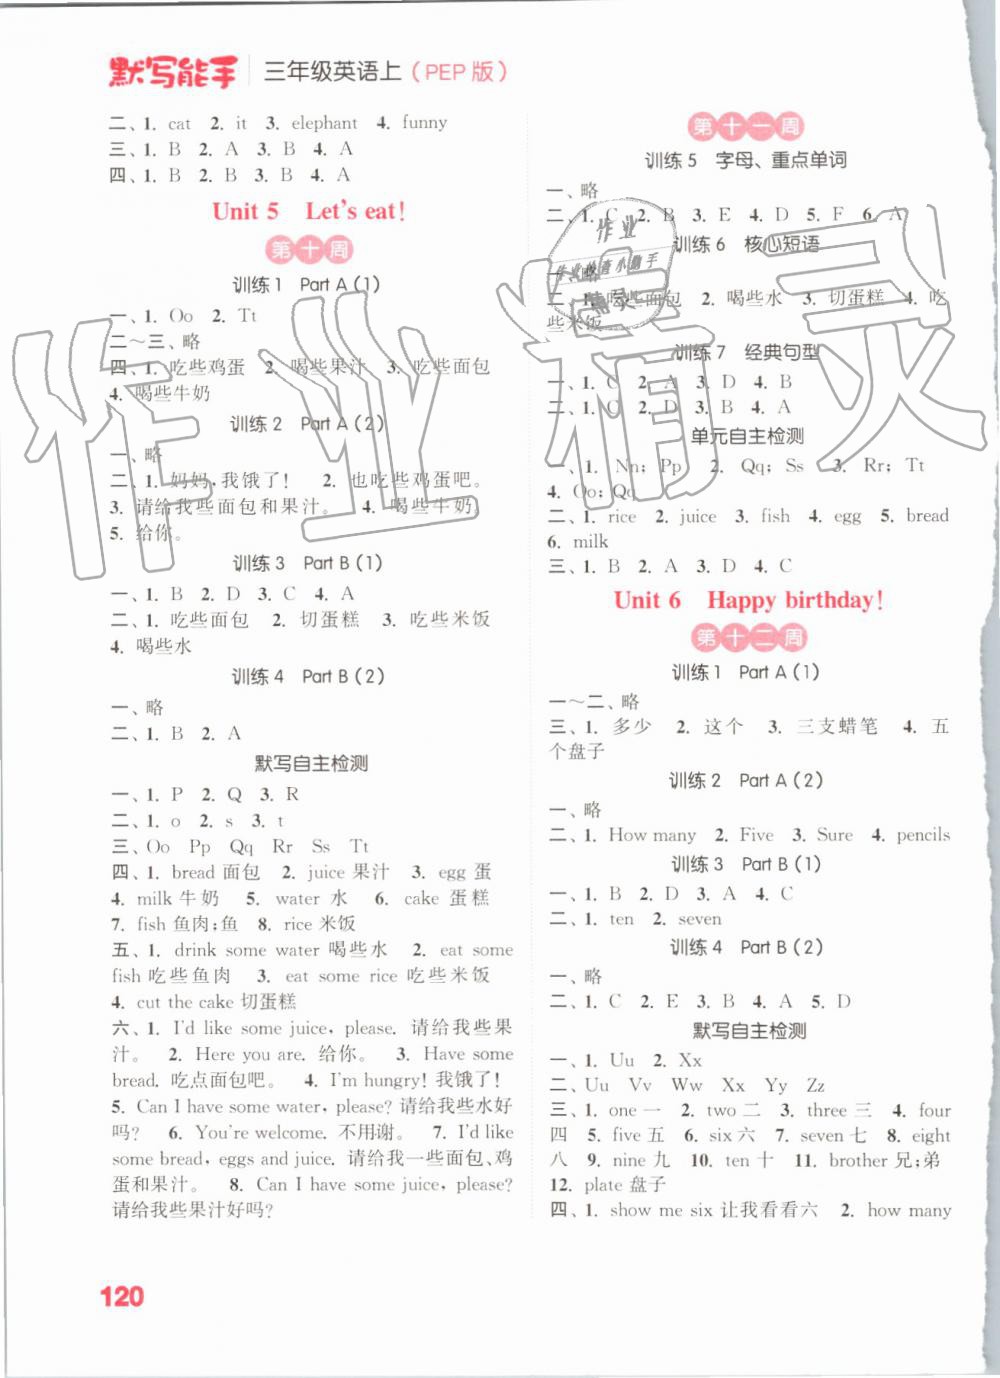 默写能手 三年级英语上（PEP 版）
二、1. cat 2. it 3. elephant 4. funny
三、1. B 2. A 3. B 4. A
四、1. B 2. B 3. B 4. A
Unit 5 Let's eat!
第十周
训练1 Part A (1)
一、1. Oo 2. Tt
二～三、略
四、1. 吃些鸡蛋 2. 喝些果汁 3. 吃些面包
4. 喝些牛奶
训练 2 Part A (2)
一、略
二、1. 妈妈,我饿了! 2. 也吃些鸡蛋吧。
3. 请给我些面包和果汁。 4. 喝些牛奶
5. 给你。
训练 3 Part B (1)
一、1. B 2. D 3. C 4. A
二、1. 吃些面包 2. 切蛋糕 3. 吃些米饭
4. 喝些水
训练 4 Part B (2)
一、略
二、1. B 2. A
默写自主检测
一、1. P 2. Q 3. R
二、1. o 2. s 3. t
三、Oo Pp Qq Rr Ss Tt
四、1. bread 面包 2. juice 果汁 3. egg 蛋
4. milk 牛奶 5. water 水 6. cake 蛋糕
7. fish 鱼肉;鱼 8. rice 米饭
五、1. drink some water 喝些水 2. eat some
fish 吃些鱼肉 3. eat some rice 吃些米饭
4. cut the cake 切蛋糕
六、1. I'd like some juice, please. 请给我些果
汁。 2. Here you are. 给你。 3. Have some
bread. 吃点面包吧。 4. I'm hungry! 我饿了!
5. Can I have some water, please? 请给我些水好
吗? 6. You're welcome. 不用谢。 7. I'd like
some bread, eggs and juice. 请给我一些面包、鸡
蛋和果汁。 8. Can I have some juice, please?
请给我些果汁好吗?
120
第十一周
训练 5 字母、重点单词
一、略
二、1. C 2. B 3. E 4. D 5. F 6. A
训练 6 核心短语
一、略
二、1. 吃些面包 2. 喝些水 3. 切蛋糕 4. 吃
些米饭
训练 7 经典句型
一、1. C 2. A 3. D 4. B
二、1. C 2. D 3. B 4. A
单元自主检测
一、1. Nn; Pp 2. Qq; Ss 3. Rr; Tt
4. Oo; Qq
二、1. rice 2. juice 3. fish 4. egg 5. bread
6. milk
三、1. B 2. A 3. D 4. C
Unit 6 Happy birthday!
第十二周
训练1 Part A (1)
一～二、略
三、1. 多少 2. 这个 3. 三支蜡笔 4. 五
个盘子
训练 2 Part A (2)
一、略
二、1. How many 2. Five 3. Sure 4. pencils
训练 3 Part B (1)
一、1. B 2. D 3. A 4. C
二、1. ten 2. seven
训练 4 Part B (2)
一、略
二、1. C 2. E 3. B 4. A 5. D
默写自主检测
一、1. Uu 2. Xx
二、Uu Vv Ww Xx Yy Zz
三、1. one 一 2. two 二 3. three 三 4. four
四 5. five 五 6. six 六 7. seven 七 8. eight
八 9. nine 九 10. ten 十 11. brother 兄;弟
12. plate 盘子
四、1. show me six 让我看看六 2. how many
作业精灵